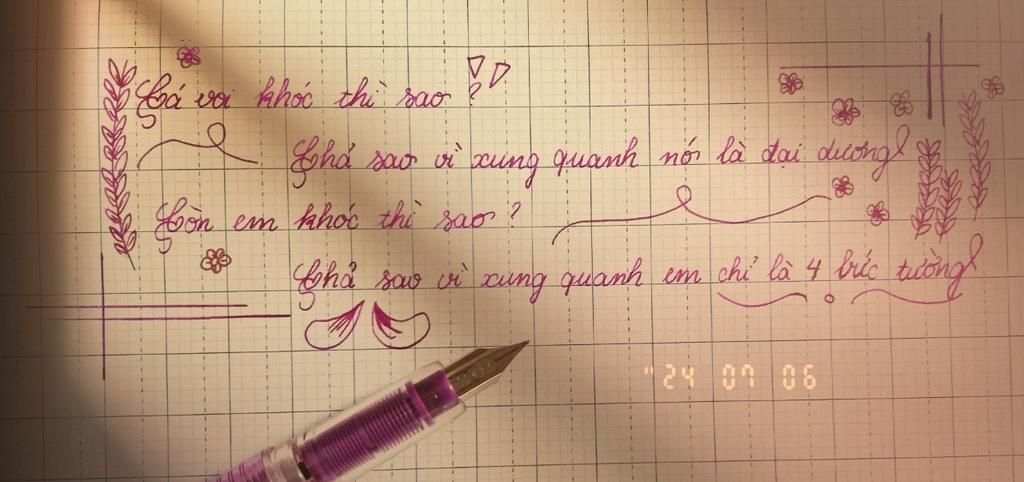 Cá voi khóc thì sao?
Chả sao vì xung quanh nó là đại dương
Còn em khóc thì sao?
Chả sao vì xung quanh em chỉ là 4 bức tường
"24 07 06